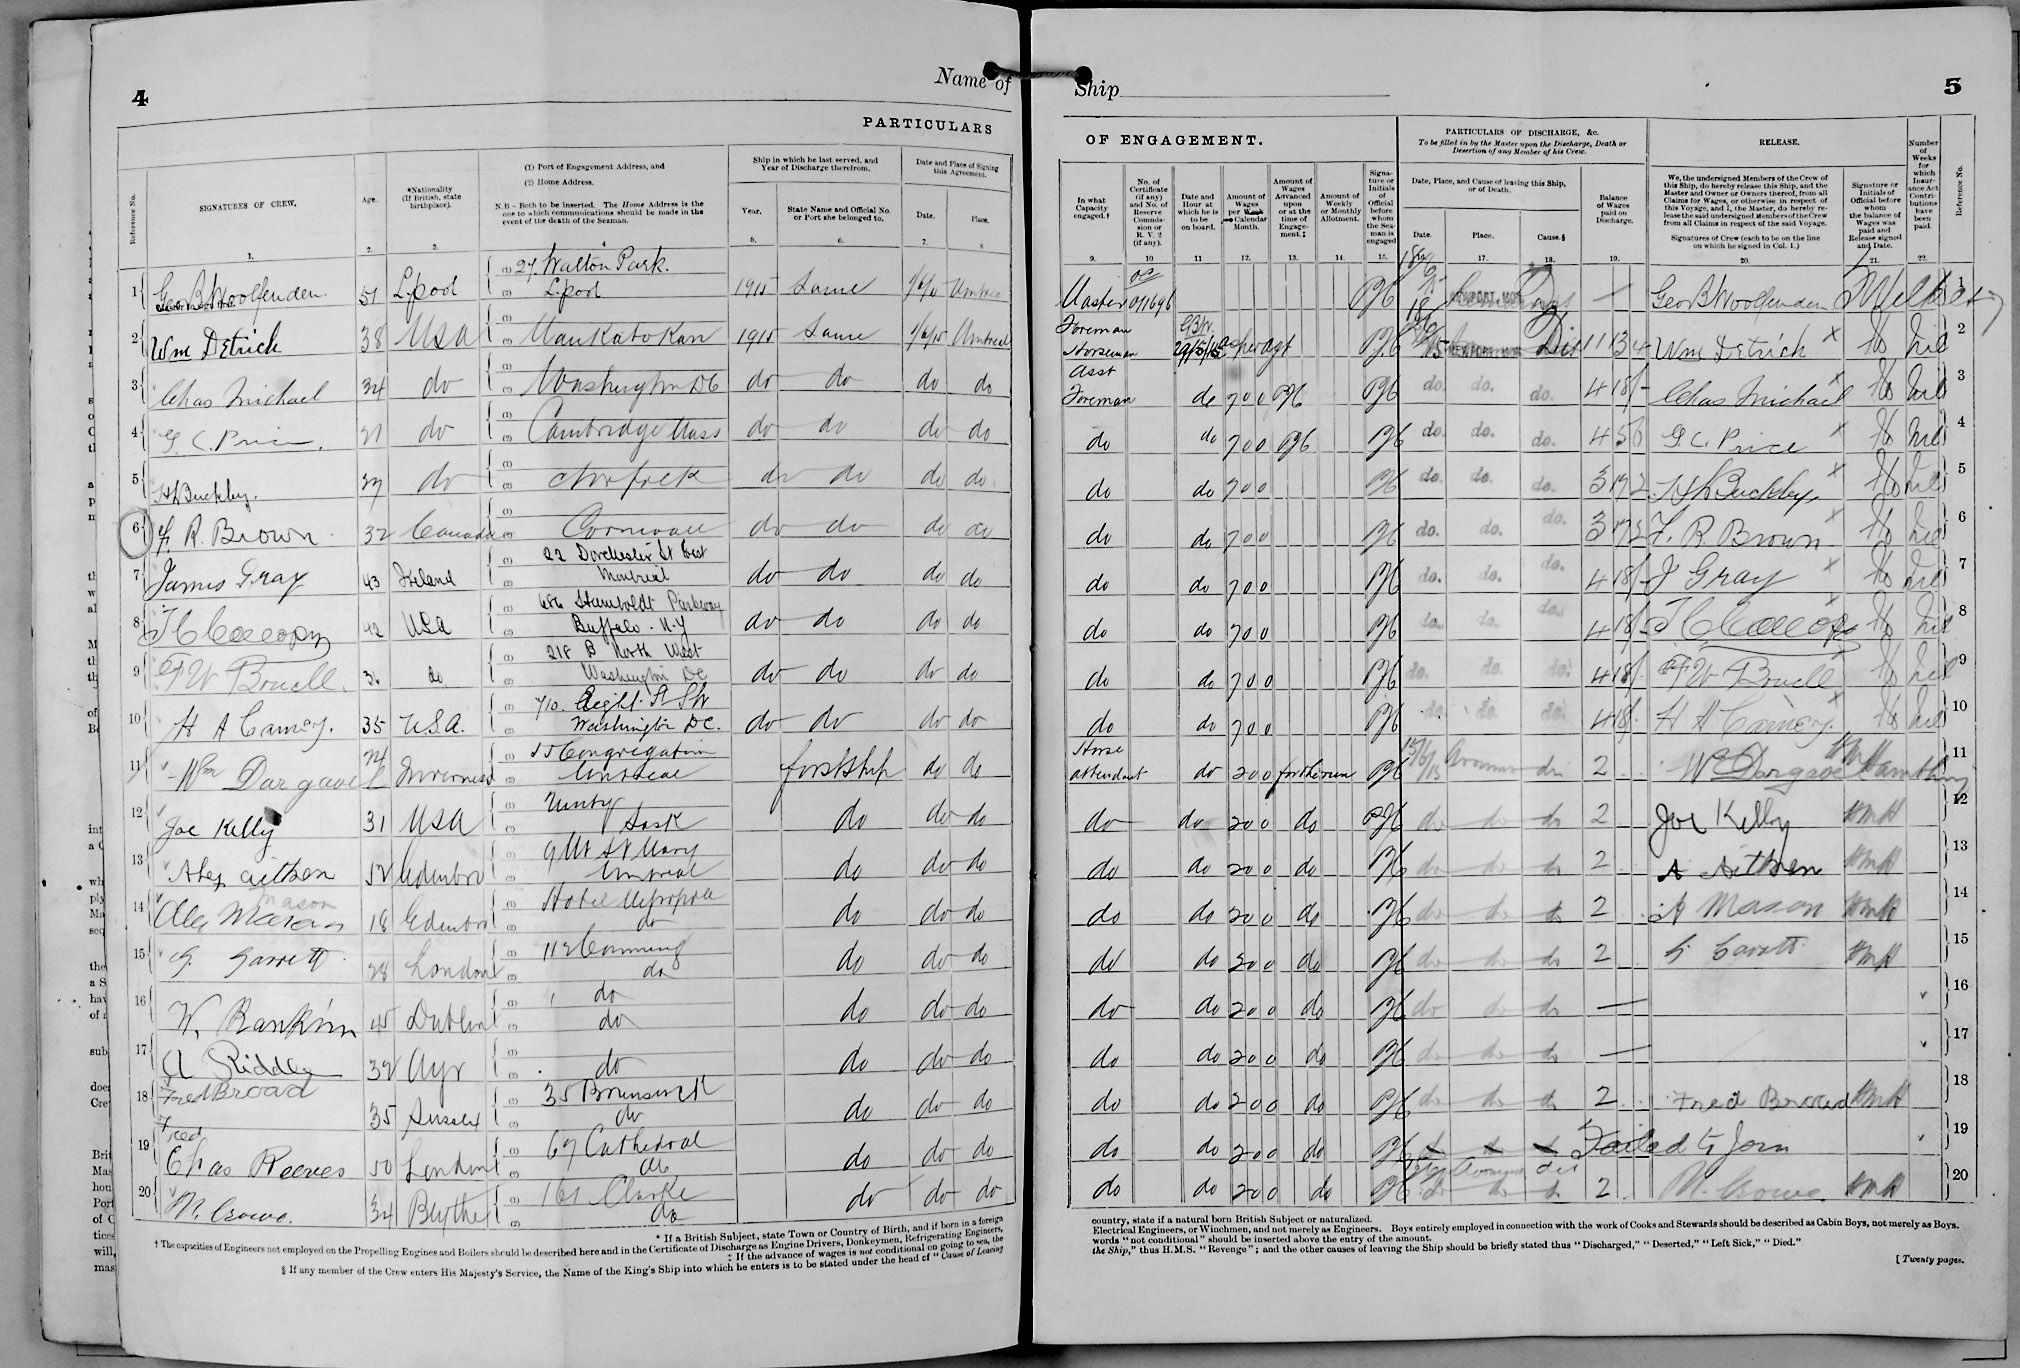 4
Name of
PARTICULARS
Reference No.
SIGNATURES OF CREW.
Age.
*Nationality
(If British, state
birthplace).
(1) Port of Engagement Address, and
(2) Home Address.
N.B - Both to be inserted. The Home Address is the
one to which communications should be made in the
event of the death of the Seaman.
Ship in which he last served, and
Year of Discharge therefrom.
Year.
State Name and Official No.
or Port she belonged to.
Date and Place of Signing
this Agreement.
Date.
Place.
1. 2. 3. 5. 6. 7. 8
1 Geo B Woolfenden 51 L.pool (1) 27 Walton Park. (2) L.pool 1915 Same
2 Wm Detrick 38 USA Mankato Kan 1915 Same Montreal
3 Chas Michael 34 do Washington DC do do do do
4 G. C. Price. 21 do Cambridge Mass do do do do
5 H L Buckley. do Norfolk do do do do
6 F. R. Brown 32 Canada Cornwall do do do do
7 James Gray 43 Ireland 22 Dorchester St West
Montreal do do do do
8 42 USA Parkway
Buffalo. N.Y do do do do
9 do 218 B North West
Washington DC do do do do
10 35 U.S.A. 710. Eight. St SW
Washington D.C. do do do do
11 Wm Dargavel 24 Inverness 55 Congregation
Montreal first ship do do
12 Joe Kelly 31 USA
Sask do do do
13 Alex Aitken 52 Edenbro 9 Mt St Mary
Montreal do do do
14 Mason 18 Edenbro Hotel
do do do do
15 G. Garrett 28 London
do do do do
16 W. Rankin 45 Dublin do
do do do do
17 32 Ayr
do do do do
18 Fred Broad 35 Sussex 35 Brunswick
do do do do
19 Fred
Chas Reeves 50 London 67 Cathedral
do do do do
20 M. Crowe. 34 Blythe 161 Clarke
do do do do
* If a British Subject, state Town or Country of Birth, and if born in a foreign
† The capacities of Engineers not employed on the Propelling Engines and Boilers should be described here and in the Certificate of Discharge as Engine Drivers, Donkeymen, Refrigerating Engineers,
‡ If the advance of wages is not conditional on going to sea, the
§ If any member of the Crew enters His Majesty's Service, the Name of the King's Ship into which he enters is to be stated under the head of "Cause of Leaving
Ship
5
OF ENGAGEMENT.
In what
Capacity
engaged.†
No. of
Certificate
(if any)
and No. of
Reserve
Commis-
sion or
R. V. 2
(if any).
Date and
Hour at
which he is
to be
on board.
Amount of
Wages
per Week
Calendar
Month.
Amount of
Wages
Advanced
upon or at the
time of
Engage-
ment.‡
Amount of
Weekly
or Monthly
Allotment.
Signa-
ture or
Initials
of
Official
before
whom
the Sea-
man is
engaged
PARTICULARS OF DISCHARGE, &c.
To be filled in by the Master upon the Discharge, Death or
Desertion of any Member of his Crew.
Date, Place, and Cause of leaving this Ship,
or of Death.
Date.
Place.
Cause.§
Balance
of Wages
paid on
Discharge.
RELEASE.
We, the undersigned Members of the Crew of
this Ship, do hereby release this Ship, and the
Master and Owner or Owners thereof, from all
Claims for Wages, or otherwise in respect of
this Voyage, and I, the Master, do hereby re-
lease the said undersigned Members of the Crew
from all Claims in respect of the said Voyage.
Signatures of Crew (each to be on the line
on which he signed in Col. 1.)
Signature or
Initials of
Official before
whom
the balance of
Wages was
paid and
Release signed
and Date.
Number
of
Weeks
for
which
Insur-
ance Act
Contri-
butions
have
been
paid.
Reference No.
9. 10 11 12. 13. 14. 15. 17. 18. 19. 20. 21. 22.
Master NEWPORT MON — Geo B Woolfenden 1
Foreman
Horseman 29/5/15 as per agt NEWPORT MON Dis 11 13 4 Wm Detrick x do nil 2
Asst
Foreman do 7 0 0 do. do. do. 4 18/- Chas Michael x do nil 3
do do 7 0 0 do. do. do. 4 5 0 G. C. Price x do nil 4
do do 7 0 0 do. do. do. 3 17 2 H L Buckley x do nil 5
do do 7 0 0 do. do. do. 3 17 2 F. R. Brown x do nil 6
do do 7 0 0 do. do. do. 4 18/- J Gray x do nil 7
do do 7 0 0 do. do. do. 4 18/- do nil 8
do do 7 0 0 do. do. do. 4 18/- do nil 9
do do 7 0 0 do. do. 4 18/- do nil 10
Horse
attendant do 2 0 0 for the run 15/6/15 dis 2 Wm Dargavel 11
do do 2 0 0 do do do do 2 Joe Kelly HmH 12
do do 2 0 0 do do do do 2 A Aitken HmH 13
do do 2 0 0 do do do do 2 A Mason HmH 14
do do 2 0 0 do do do do 2 G Garrett HmH 15
do do 2 0 0 do do do do — 16
do do 2 0 0 do do do do — 17
do do 2 0 0 do do do do 2 Fred Broad HmH 18
do do 2 0 0 do Failed to Join 19
do do 2 0 0 do do do do 2 M. Crowe. HmH 20
country, state if a natural born British Subject or naturalized.
Electrical Engineers, or Winchmen, and not merely as Engineers. Boys entirely employed in connection with the work of Cooks and Stewards should be described as Cabin Boys, not merely as Boys.
words "not conditional" should be inserted above the entry of the amount.
the Ship," thus H.M.S. "Revenge"; and the other causes of leaving the Ship should be briefly stated thus "Discharged," "Deserted," "Left Sick," "Died."
[Twenty pages.